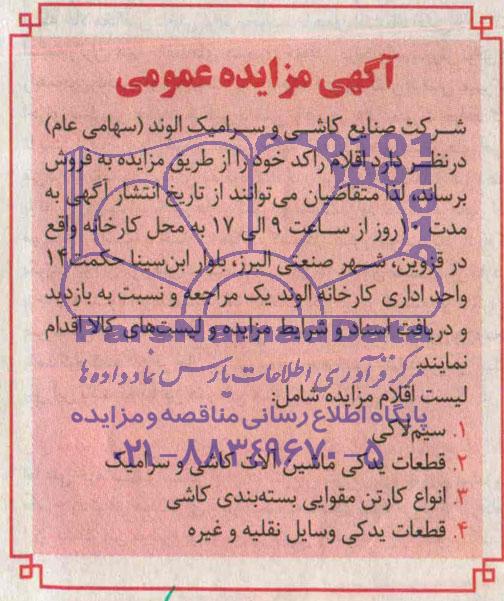 آگهی مزایده عمومی
شرکت صنایع کاشی و سرامیک الوند (سهامی عام)
درنظر دارد اقلام راکد خود را از طریق مزایده به فروش
برساند، لذا متقاضیان می‌توانند از تاریخ انتشار آگهی به
مدت ۱۰ روز از ساعت ۹ الی ۱۷ به محل کارخانه واقع
در قزوین، شهر صنعتی البرز، بلوار ابن‌سینا حکمت ۱۴
واحد اداری کارخانه الوند یک مراجعه و نسبت به بازدید
و دریافت اسناد و شرایط مزایده و لیست‌های کالا اقدام
ParsNamadData
نمایند.
مرکز فرآوری اطلاعات پارس نماد داده ها
لیست اقلام مزایده شامل:
پایگاه اطلاع رسانی مناقصه و مزایده
۱. سیم‌لاکی
۰۲۱-۸۸۳۴۹۶۷۰-۵
۲. قطعات یدکی ماشین آلات کاشی و سرامیک
۳. انواع کارتن مقوایی بسته‌بندی کاشی
۴. قطعات یدکی وسایل نقلیه و غیره